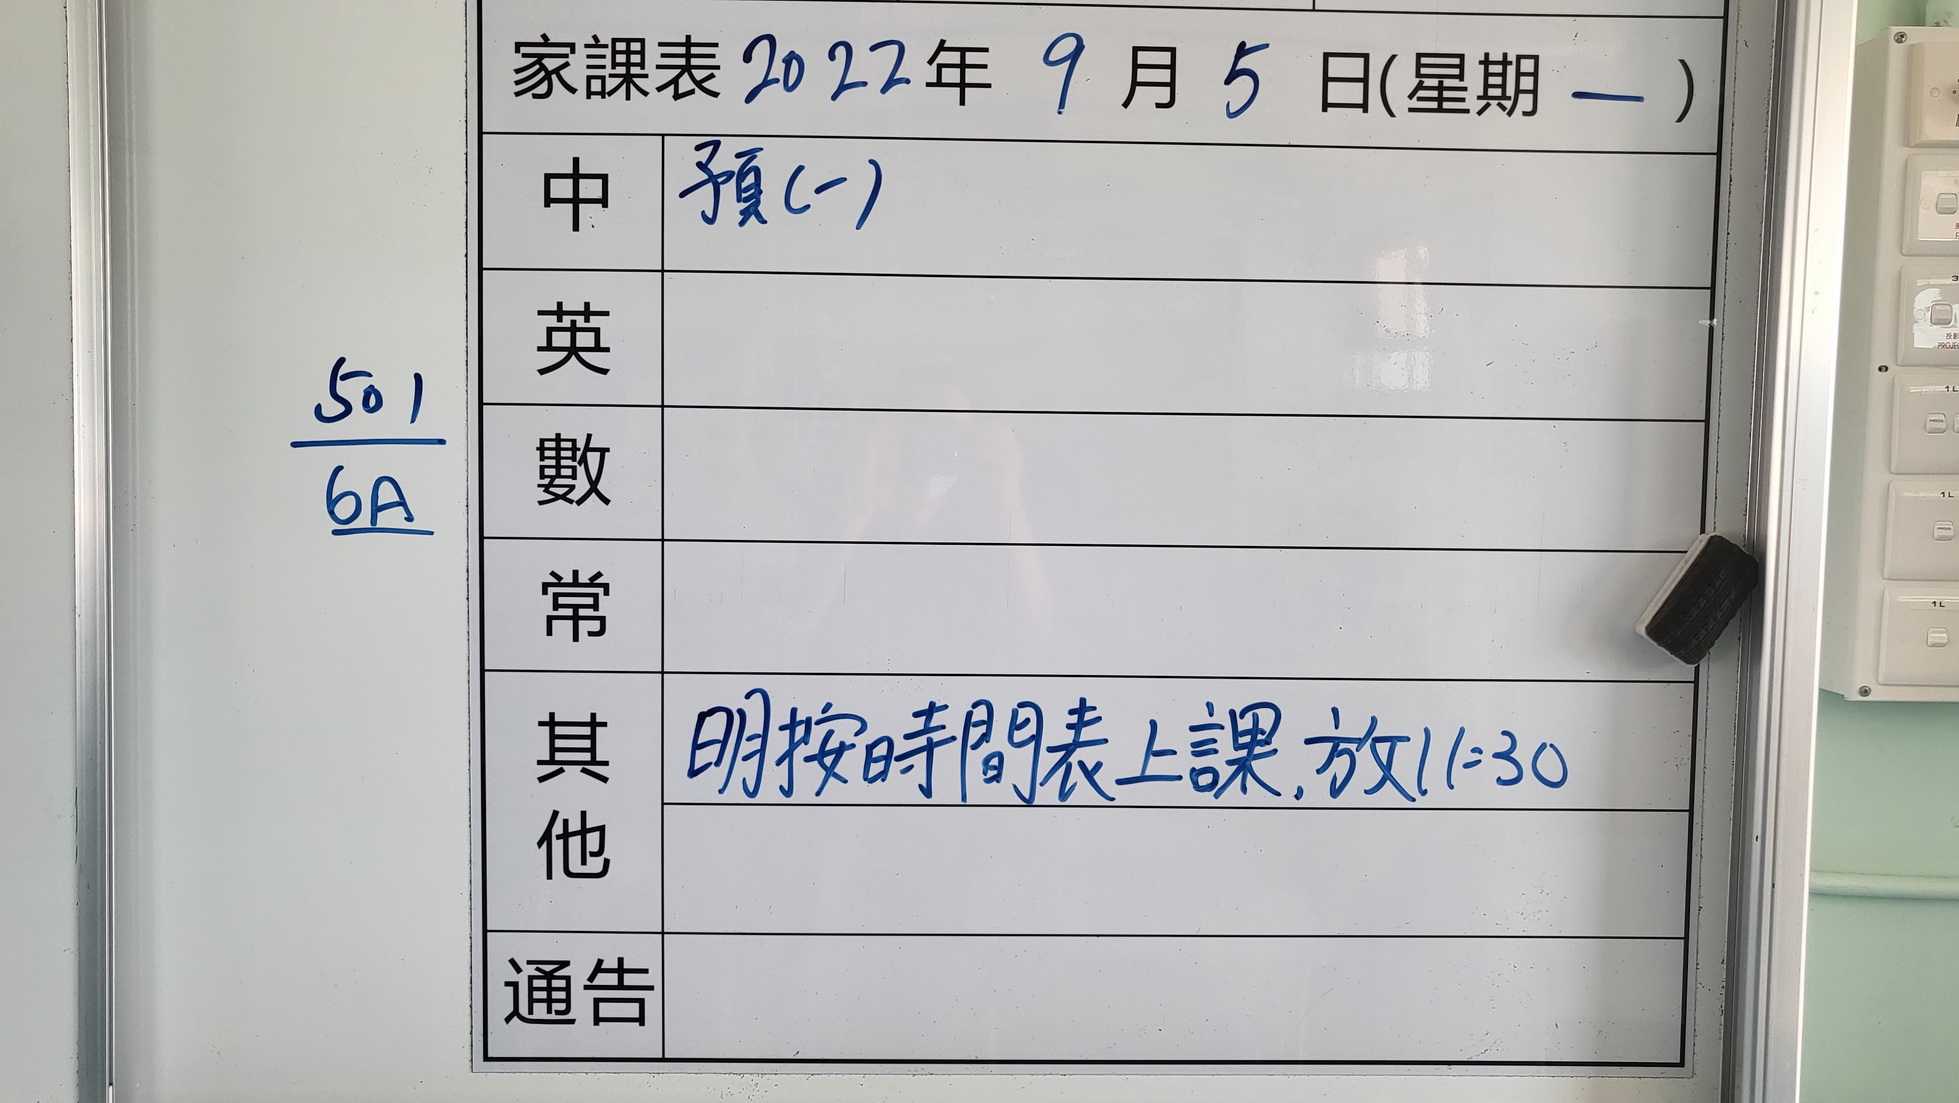 家課表 2022年 9月5日(星期一)
中 預(一)
英
數
常
其他 明按時間表上課.放11:30
通告
501
6A
1L
1L